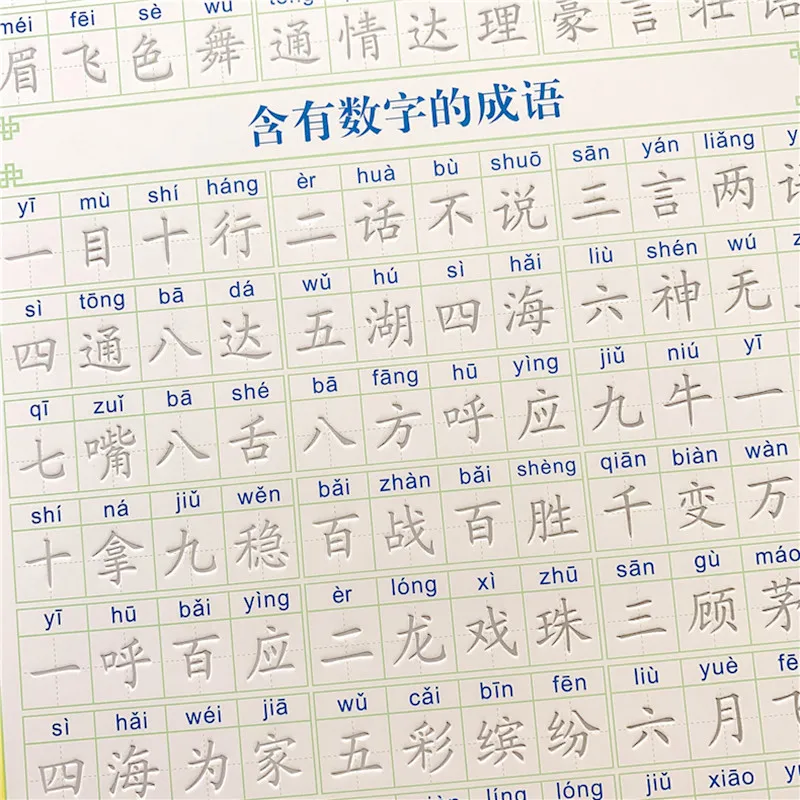 méi fēi sè wǔ
眉飞色舞 通情达理 豪言壮语
含有数字的成语
yī mù shí háng èr huà bù shuō sān yán liǎng
一目十行 二话不说 三言两
sì tōng bā dá wǔ hú sì hǎi liù shén wú
四通八达 五湖四海 六神无
qī zuǐ bā shé bā fāng hū yìng jiǔ niú yī
七嘴八舌 八方呼应 九牛一
shí ná jiǔ wěn bǎi zhàn bǎi shèng qiān biàn wàn
十拿九稳 百战百胜 千变万
yī hū bǎi yìng èr lóng xì zhū sān gù máo
一呼百应 二龙戏珠 三顾茅
sì hǎi wéi jiā wǔ cǎi bīn fēn liù yuè fē
四海为家 五彩缤纷 六月飞
líng lóng jiǔ xiāo